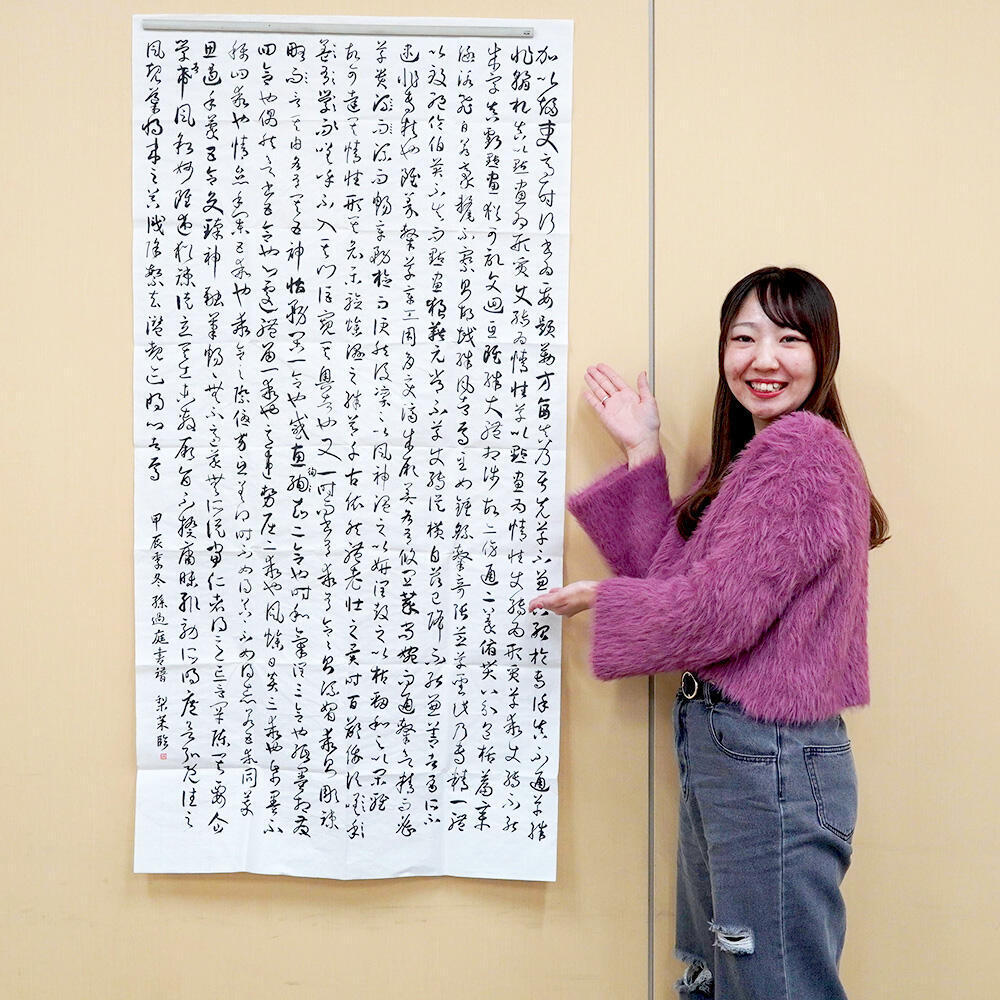 加以趨吏適時行書為要題勒方畐真乃居先草不兼真殆於專謹真不通草殊
非翰札真以點畫為形質使轉為情性草以點畫為情性使轉為形質草乖使轉不能
成字真虧點畫猶可記文迴互雖殊大體相涉故亦傍通二篆俯貫八分包括篇章
涵泳飛白若豪釐不察則胡越殊風者焉至如鍾繇隸奇張芝草聖此乃專精一體
以致絕倫伯英不真而點畫狼藉元常不草使轉縱橫自茲已降不能兼善者有所不
逮非專精也雖篆隸草章工用多變濟成厥美各有攸宜篆尚婉而通隸欲精而密
草貴流而暢章務檢而便然後凜之以風神溫之以妍潤鼓之以枯勁和之以閑雅
故可達其情性形其哀樂驗燥濕之殊節千古依然體老壯之異時百齡俄頃
嗟乎不入其門詎窺其奧者也又一時而書有乖有合合則流媚乖則彫疎
略言其由各有其五神怡務閑一合也感惠徇知二合也時和氣潤三合也紙墨相發
四合也偶然欲書五合也心遽體留一乖也意違勢屈二乖也風燥日炎三乖也紙墨不
稱四乖也情怠手闌五乖也乖合之際優劣互差得時不如得器得器不如得志若五乖同萃
思遏手蒙五合交臻神融筆暢暢無不適蒙無所從當仁者得意忘言罕陳其要企
學者希風敘妙雖述猶疎徒立其工未敷厥旨不揆庸昧輒効所明庶欲弘既往之
風規導將來之器識除繁去濫覩迹明心者焉
甲辰季冬 孫過庭書譜 梨菜臨